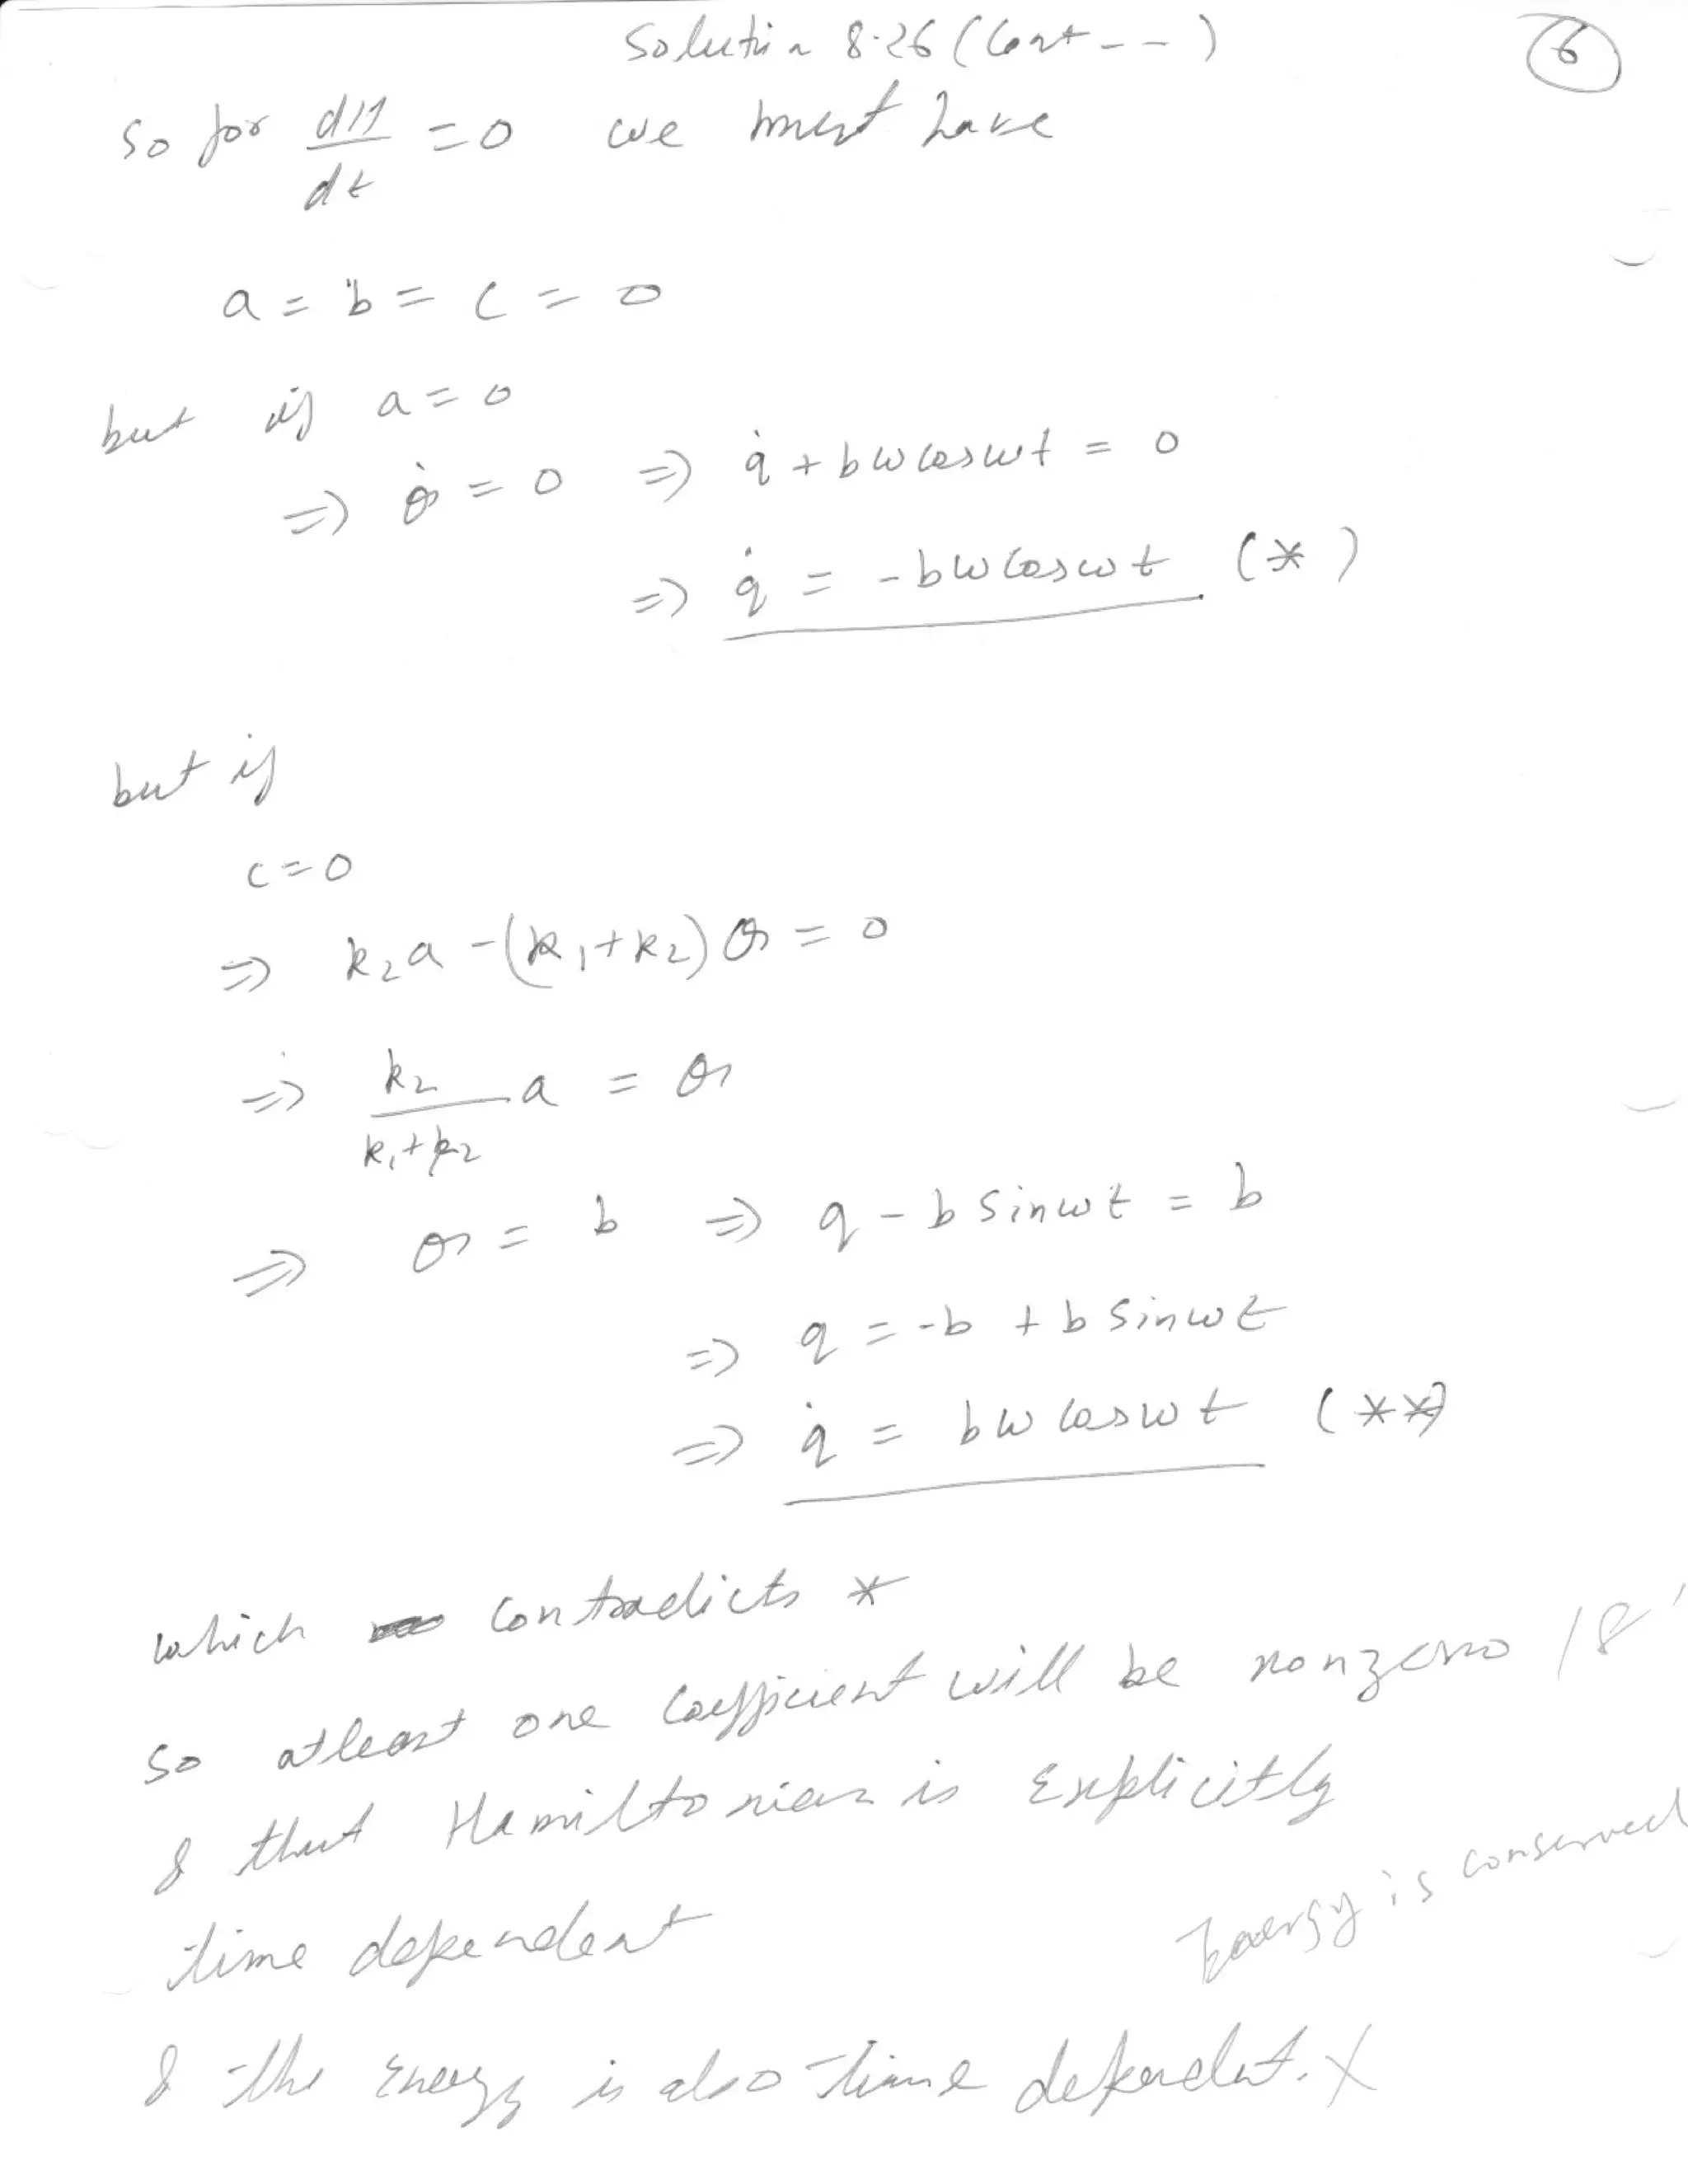 Solution 8.26 (Cont - - )
6
So for dH/dt = 0 we must have
a = b = c = 0
but if a = 0
⇒ Q̇ = 0 ⇒ q̇ + bω cos ωt = 0
⇒ q̇ = -bω cos ωt (*)
but if
c = 0
⇒ k₂a - (k₁+k₂) Q = 0
⇒ k₂/(k₁+k₂) a = Q
⇒ Q = b ⇒ q - b sin ωt = b
⇒ q = -b + b sin ωt
⇒ q̇ = bω cos ωt (**)
which contradicts *
so atleast one coefficient will be nonzero /8
& that Hamiltonian is Explicitly
time dependent
Energy is conserved
& the Energy is also time dependent. X